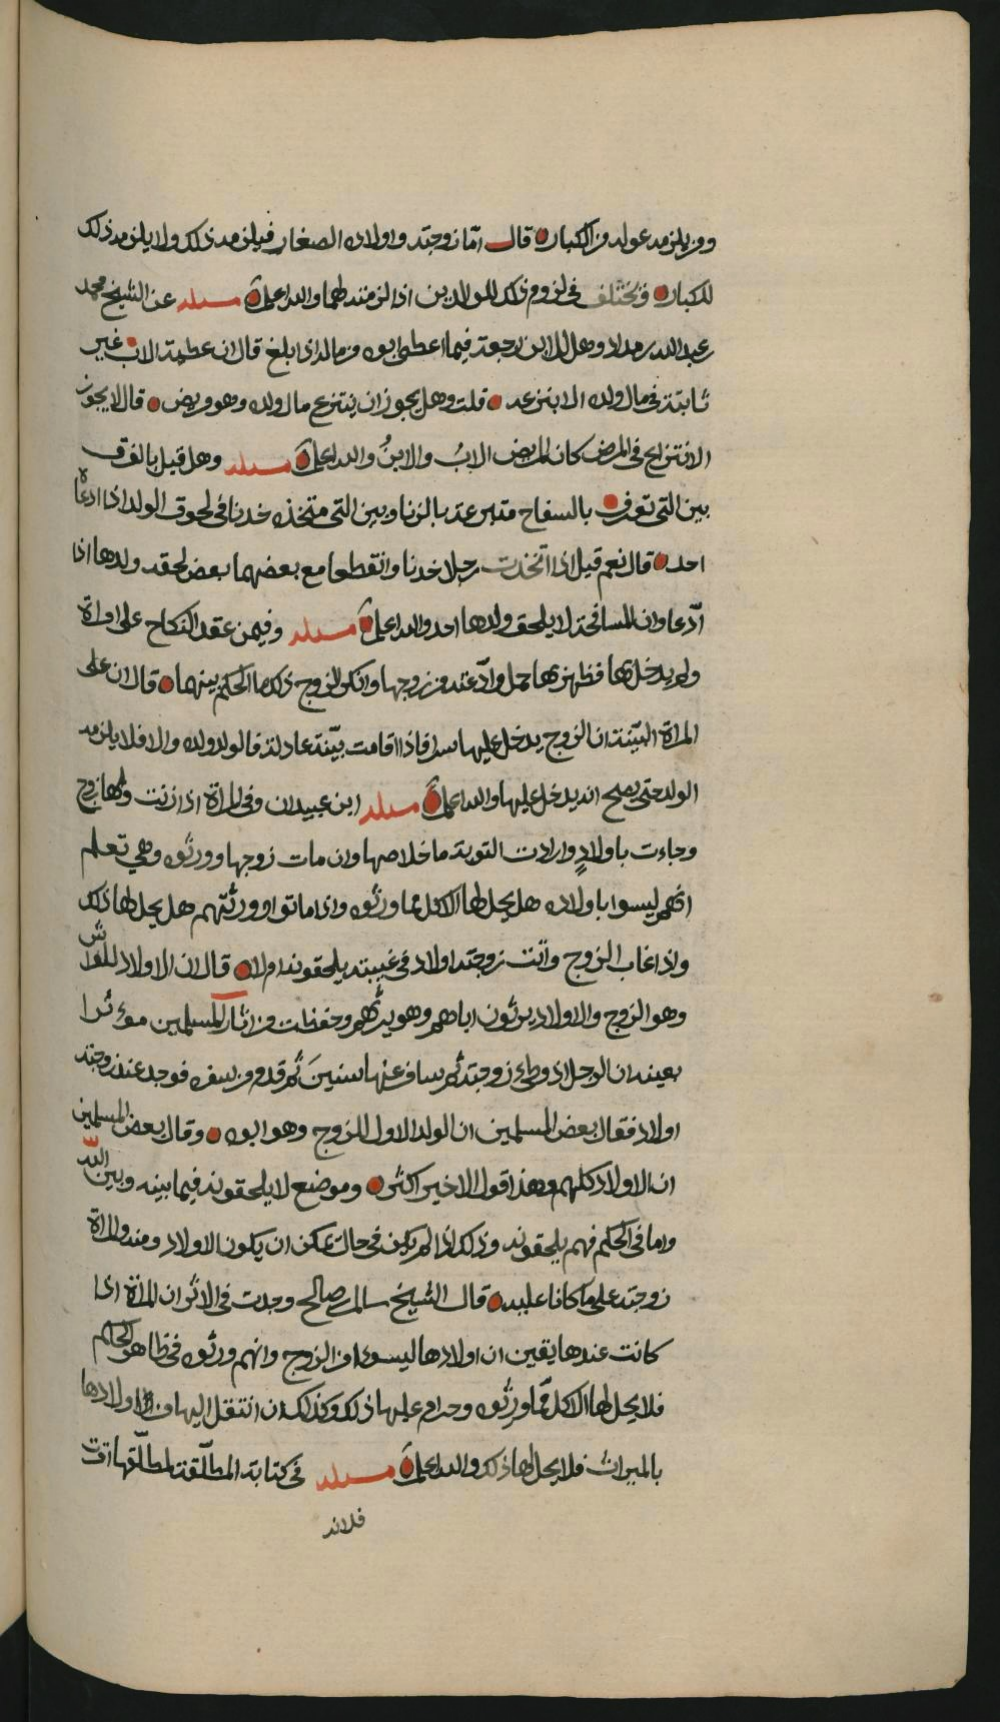 ومن يلزمه عوله من الكبار قال اما زوجته واولاده الصغار فيلزمه ذلك ولا يلزمه ذلك
للكبار ويختلف في لزوم ذلك للوالدين اذا لزمته لهما والله اعلم مسئلة عن الشيخ محمد
بن عبدالله بن مداد وهل للابن رجعة فيما اعطى ابوه من ماله اذا بلغ قال ان عطية الاب غير
ثابتة في مال ولده الا بنزعه قلت وهل يجوز ان ينتزع مال ولده وهو مريض قال لا يجوز
الانتزاع في المرض كان المريض الابُ والابنُ والله اعلم مسئلة وهل قيل بالفرق
بين التي تعرف بالسفاح متبرعة بالزنا وبين التي متخذه خدنا في لحوق الولد اذا ادعاه
احد قال نعم قيل اذا اتخذت رجلا خدنا وانقطعا مع بعضهما بعض لحقه ولدها اذا
ادّعا وان المسافحة لا يلحق ولدها احد والله اعلم مسئلة وفيمن عقد النكاح على امراة
ولم يدخل بها فظهر بها حمل وادّعته من زوجها وانكر الزوج ذلك ما الحكم بينهما قال ان على
المراة البيّنة ان الزوج يدخل عليها سرا فاذا اقامت بيّنة عادلة فالولد ولده والا فلا يلزمه
الولد حتى يصح انه يدخل عليها والله اعلم مسئلة ابن عبيدان وفي المراة اذا زنت ولها زوج
وجاءت باولادٍ وارادت التوبة ما خلاصها وان مات زوجها وورثوه وهي تعلم
انهم ليسوا باولاده هل يحل لها الاكل مما ورثوه واذا ماتوا وورثتهم هل يحل لها ذلك
واذا غاب الزوج واتت زوجته اولاد في غيبته يلحقونه ام لا قال ان الاولاد للفراش
وهو الزوج والاولاد يرثون اباهم وهو يرثهم وحفظت من اثار المسلمين مؤثرا
بعينه ان الرجل اذ وطئ زوجته ثم سافر عنها سنينَ ثم قدم من سفره فوجد عند زوجته
اولاد فقال بعض المسلمين ان الولد الاول للزوج وهو ابوه وقال بعض المسلمين
ان الاولاد كلهم وهذا قول الاخير اكثر وموضع لا يلحقونه فيما بينه وبين الله
واما في الحكم فهم يلحقونه وذلك اذا لم يكن في حال يمكن ان يكون الاولاد منه والمراة
زوجته على ما كانا عليه قال الشيخ سالم بن صالح وجدت في الاثر ان المراة اذا
كانت عندها يقين ان اولادها ليسوا من الزوج وانهم ورثوه في ظاهر الحكم
فلا يحل لها الاكل مما ورثوه وحرام عليها ذلك وكذلك ان انتقل اليها من اولادها
بالميراث فلا يحل لها ذلك والله اعلم مسئلة في كتابة المطلّقة لمطلّقها اقرت
فلانه